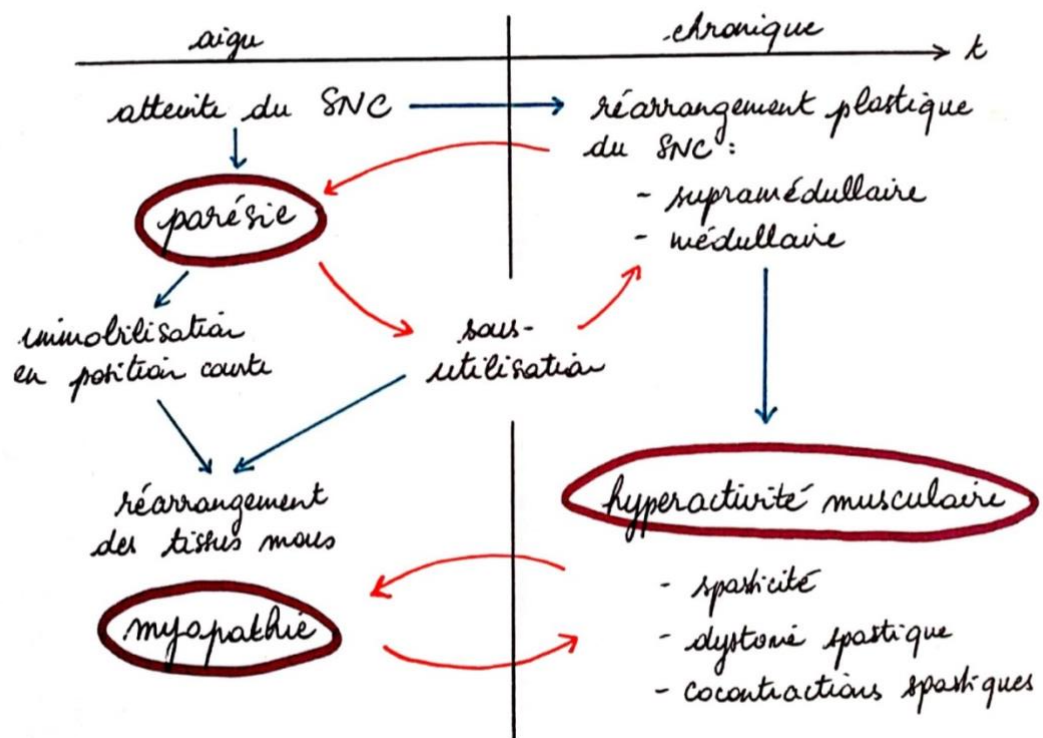 aigu
chronique
t
atteinte du SNC
réarrangement plastique
du SNC :
- supramédullaire
- médullaire
parésie
immobilisation
en position courte
sous-
utilisation
réarrangement
des tissus mous
myopathie
hyperactivité musculaire
- spasticité
- dystonie spastique
- cocontractions spastiques